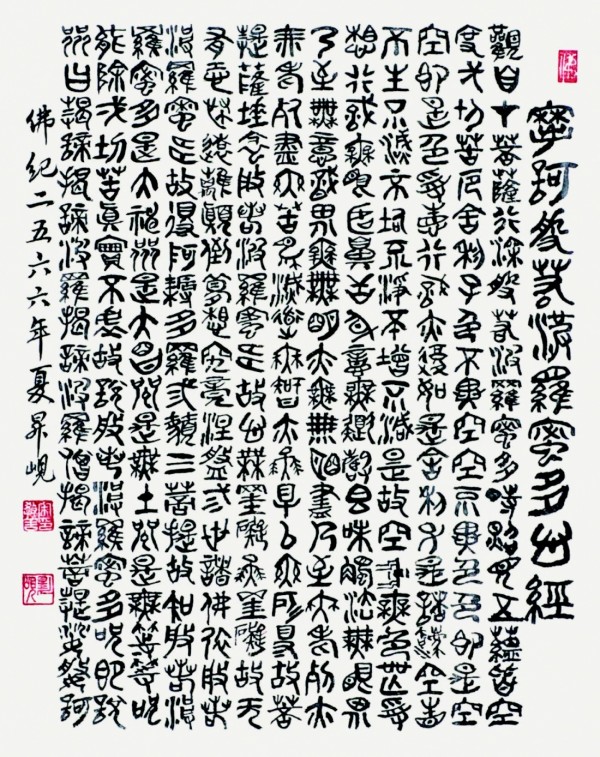 摩訶般若波羅蜜多心經
觀自在菩薩行深般若波羅蜜多時照見五蘊皆空
度一切苦厄舍利子色不異空空不異色色即是空
空即是色受想行識亦復如是舍利子是諸法空相
不生不滅不垢不淨不增不減是故空中無色無受
想行識無眼耳鼻舌身意無色聲香味觸法無眼界
乃至無意識界無無明亦無無明盡乃至無老死亦
無老死盡無苦集滅道無智亦無得以無所得故菩
提薩埵依般若波羅蜜多故心無罣礙無罣礙故無
有恐怖遠離顛倒夢想究竟涅槃三世諸佛依般若
波羅蜜多故得阿耨多羅三藐三菩提故知般若波
羅蜜多是大神呪是大明呪是無上呪是無等等呪
能除一切苦真實不虛故說般若波羅蜜多呪即說
呪曰揭諦揭諦波羅揭諦波羅僧揭諦菩提娑婆訶
佛紀二五六六年夏昇峴